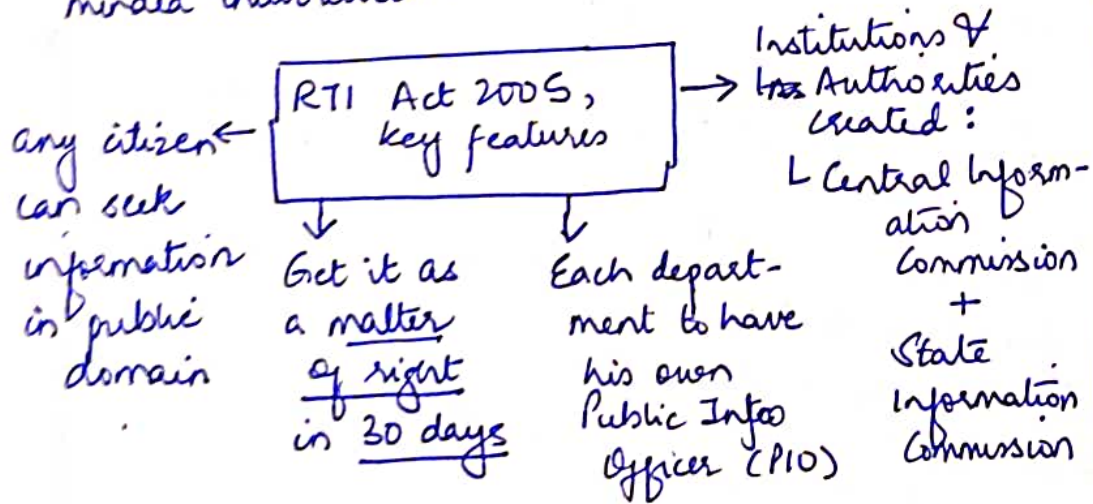 minded
RTI Act 2005,
key features
any citizen
can seek
information
in public
domain
Get it as
a matter
of right
in 30 days
Each depart-
ment to have
his own
Public Info
Officer (PIO)
Institutions &
Authorities
created :
Central Inform-
ation
Commission
+
State
Information
Commission